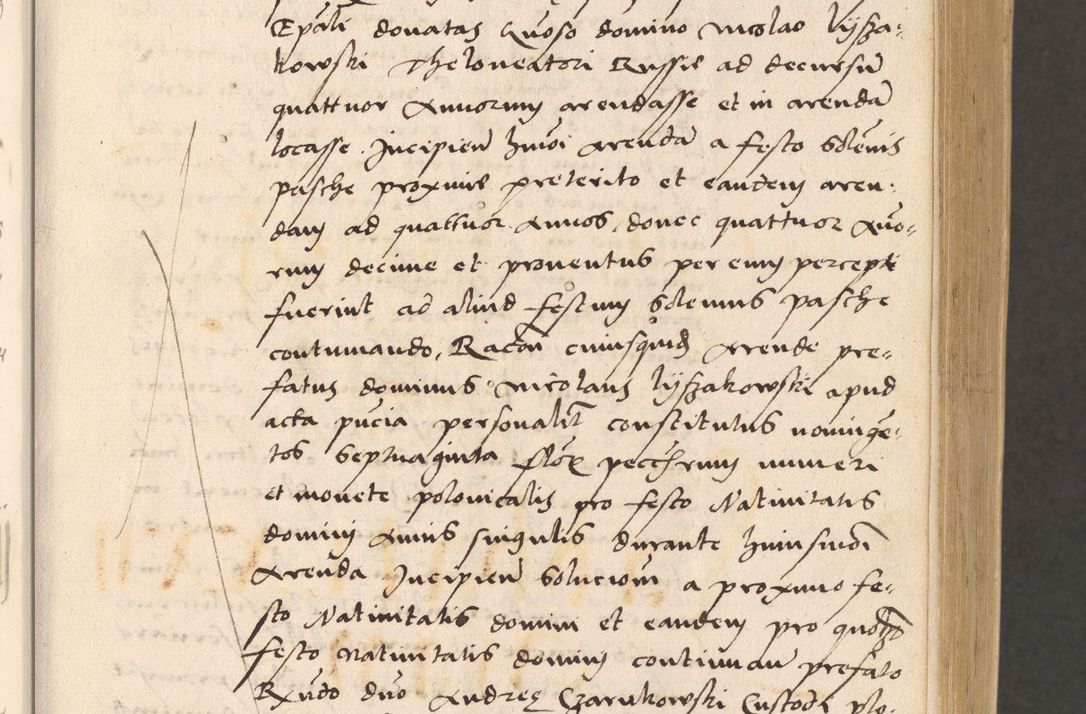 Epali donatas Quoso domino nicolao lÿsza-
kowski Theloneatori Russie ad decursu
quattuor Annorum arendasse et in arenda
locasse. Incipien hmoi Arenda a festo solenis
pasche proxime preterito et eandem aren-
dam ad quattuor Annos, donec quattuor Ano-
rum decime et proventus per eum percepti
fuerint ad aliud festum solemnis pasche
continuando, Racon cuiusquidem Arende pre-
fatus dominus Nicolaus lÿszakowski apud
acta pncia personalit constitutus noninge-
tos septuaginta flor pecchrum numeri
et monete polonicalis pro festo Nativitatis
dominj Annis singulis durante huiusmodi
Arenda Incipien solucionem a proximo fe-
sto Nativitatis domini et eandem pro
festo nativitatis dominj continuan prefato
Rndo dno Andree Czarnkowski Custodi plo-